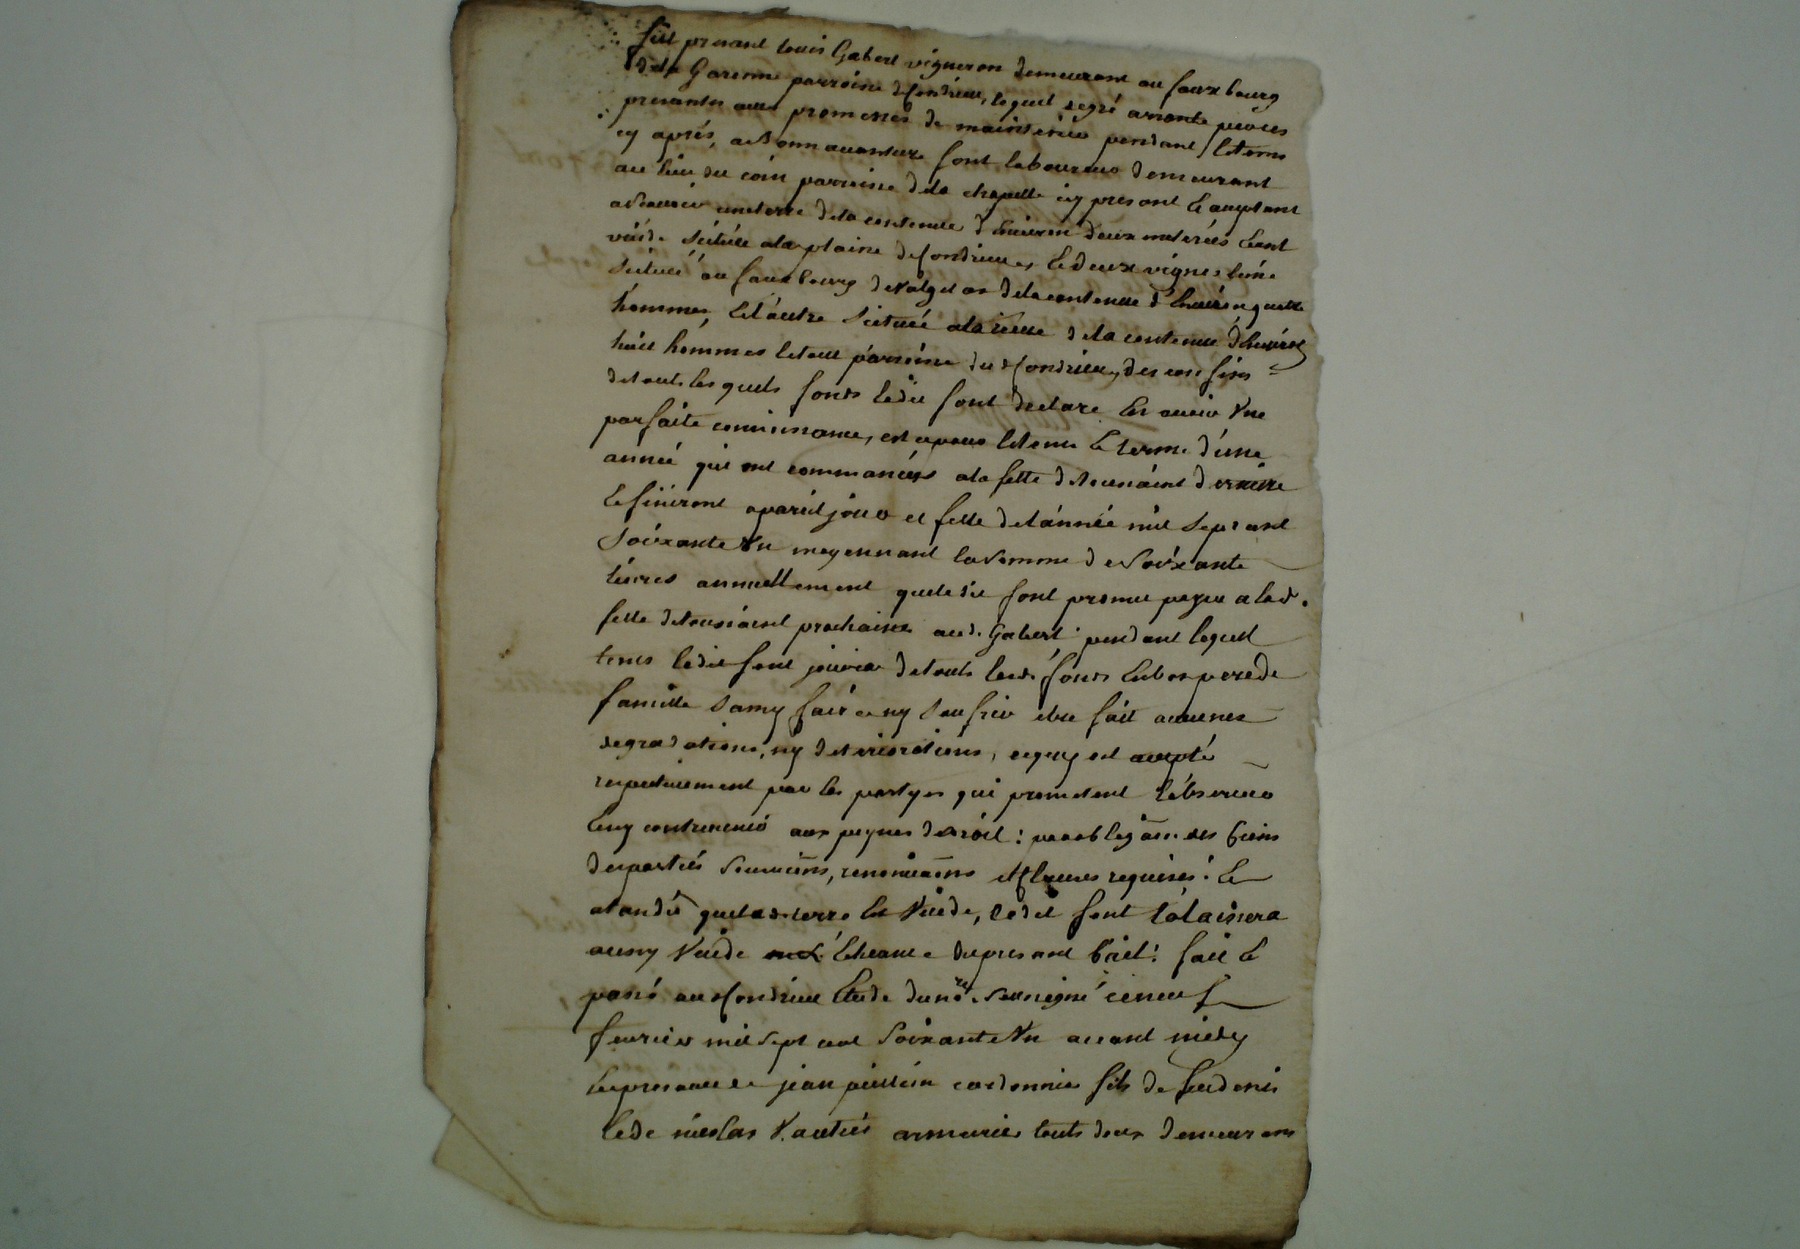 fut presant louis Gabert vigneron demeurant au fauxbourg
dela Garenne parroisse de Condrieu, lequel degré arrante par ces
presantes avec promesses de maintenir pendant le tems
cy aprés, a Bonnavanture font laboureur demeurant
au lieu du coin parroisse dela chapelle icy presant & acceptant
ascavoir une terre dela contenue d'environ deux meterées etant
vuide scituée ala plaine de Condrieu, & deux vignes l'une
scituée au fauxbourg de dela contenue d'environ quatre
hommes, & l'autre scituée ala dela contenue d'environ
huit hommes le tout parroisse du d Condrieu, des confins
de touts lesquels fonds ledit font declare en avoir Une
parfaite connoissance, est ce pour le tems & terme d'une
année qui ont commancés ala fette de Toussaint derniere
& finiront a pareil jour et fette de l'année mil sept cent
Soixante Un moyennant la somme de Soixante
livres annuellement que ledit font promet payer a lad.
fette de Toussaint prochaine aud. Gabert, pendant lequel
tems ledit font jouira de touts lesd. fonds en bon pere de
famille sans y faire ny soufrir etre fait aucunes
degradations, ny deteriorations, ce qui est accepté
respectivement par les partyes qui promettent l'observer
& n'y contrevenir aux peynes de droit: par obligaõn des biens
des parties soumiõns, renonciaõns & clauses requises: &
atandu que lad. terre est Vuide, ledit font la laissera
aussy Vuide a l'echeance du presant bail: fait &
passé aud Condrieu Etude du nore. soussigné ce neuf
fevrier mil sept cent Soixante Un avant midy
en presance de jean cordonnier fils de feu denis
& de nicolas Vautier armurier touts deux demeurans